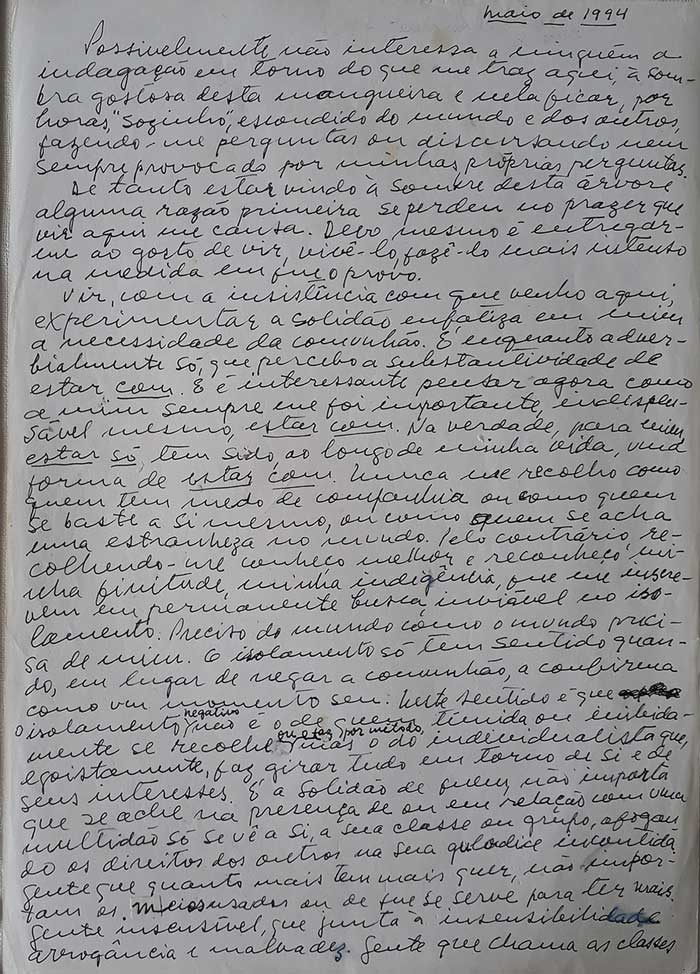 maio de 1994
Possivelmente não interessa a ninguém a
indagação em torno do que me traz aqui, à som-
bra gostosa desta mangueira e nela ficar, por
horas, "sozinho", escondido do mundo e dos outros,
fazendo-me perguntas ou discursando nem
sempre provocado por minhas próprias perguntas.
De tanto estar vindo à sombra desta árvore
alguma razão primeira se perdeu no prazer que
vir aqui me causa. Devo mesmo é entregar-
me ao gosto de vir, vivê-lo, fazê-lo mais intenso
na medida em que o provo.
Vir, com a insistência com que venho aqui,
experimentar a solidão enfatiza em mim
a necessidade da comunhão. É enquanto adver-
bialmente só, que percebo a substantividade de
estar com. E é interessante pensar agora como
a mim sempre me foi importante, indispen-
sável mesmo, estar com. Na verdade, para mim,
estar só, tem sido, ao longo de minha vida, uma
forma de estar com. Nunca me recolho como
quem tem medo de companhia ou como quem
se baste a si mesmo, ou como quem se acha
uma estranheza no mundo. Pelo contrário, re-
colhendo-me conheço melhor e reconheço mi-
nha finitude, minha indigência, que me inscre-
vem em permanente busca, inviável no iso-
lamento. Preciso do mundo como o mundo preci-
sa de mim. O isolamento só tem sentido quan-
do, em lugar de negar a comunhão, a confirma
como um momento seu. Neste sentido é que
o isolamento negativo não é o de quem tímida ou inibida-
mente se recolhe ou o faz por método, mas o do individualista que,
egoistamente, faz girar tudo em torno de si e de
seus interesses. É a solidão de quem, não importa
que se ache na presença de ou em relação com uma
multidão só se vê a si, a sua classe ou grupo, afogan
do os direitos dos outros na sua gulodice incontida.
Gente que quanto mais tem mais quer, não impor-
tam os meios usados ou de que se serve para ter mais.
Gente insensível, que junta à insensibilidade
arrogância e malvadez. Gente que chama as classes